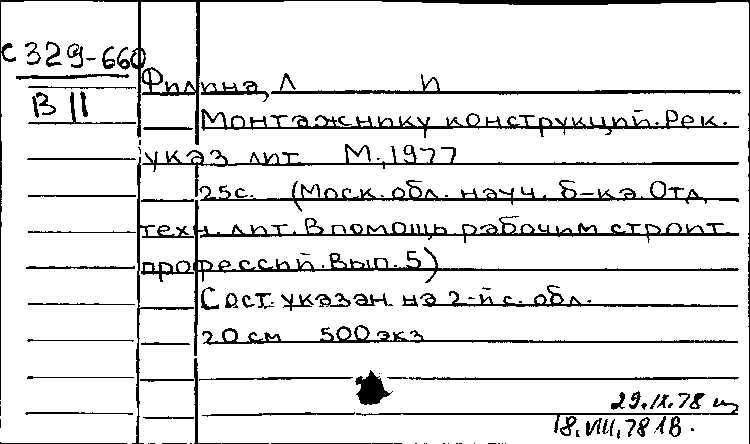 С 329-660
В 11
Филина, Л И
Монтажнику конструкций. Рек.
указ лит М., 1977
25с. (Моск. обл. науч. б-ка. Отд
техн. лит. В помощь рабочим строит
профессий. Вып. 5)
Сост. указан на 2-й с. обл.
20см 500экз
29.IX.78
18.VIII.78 1В.